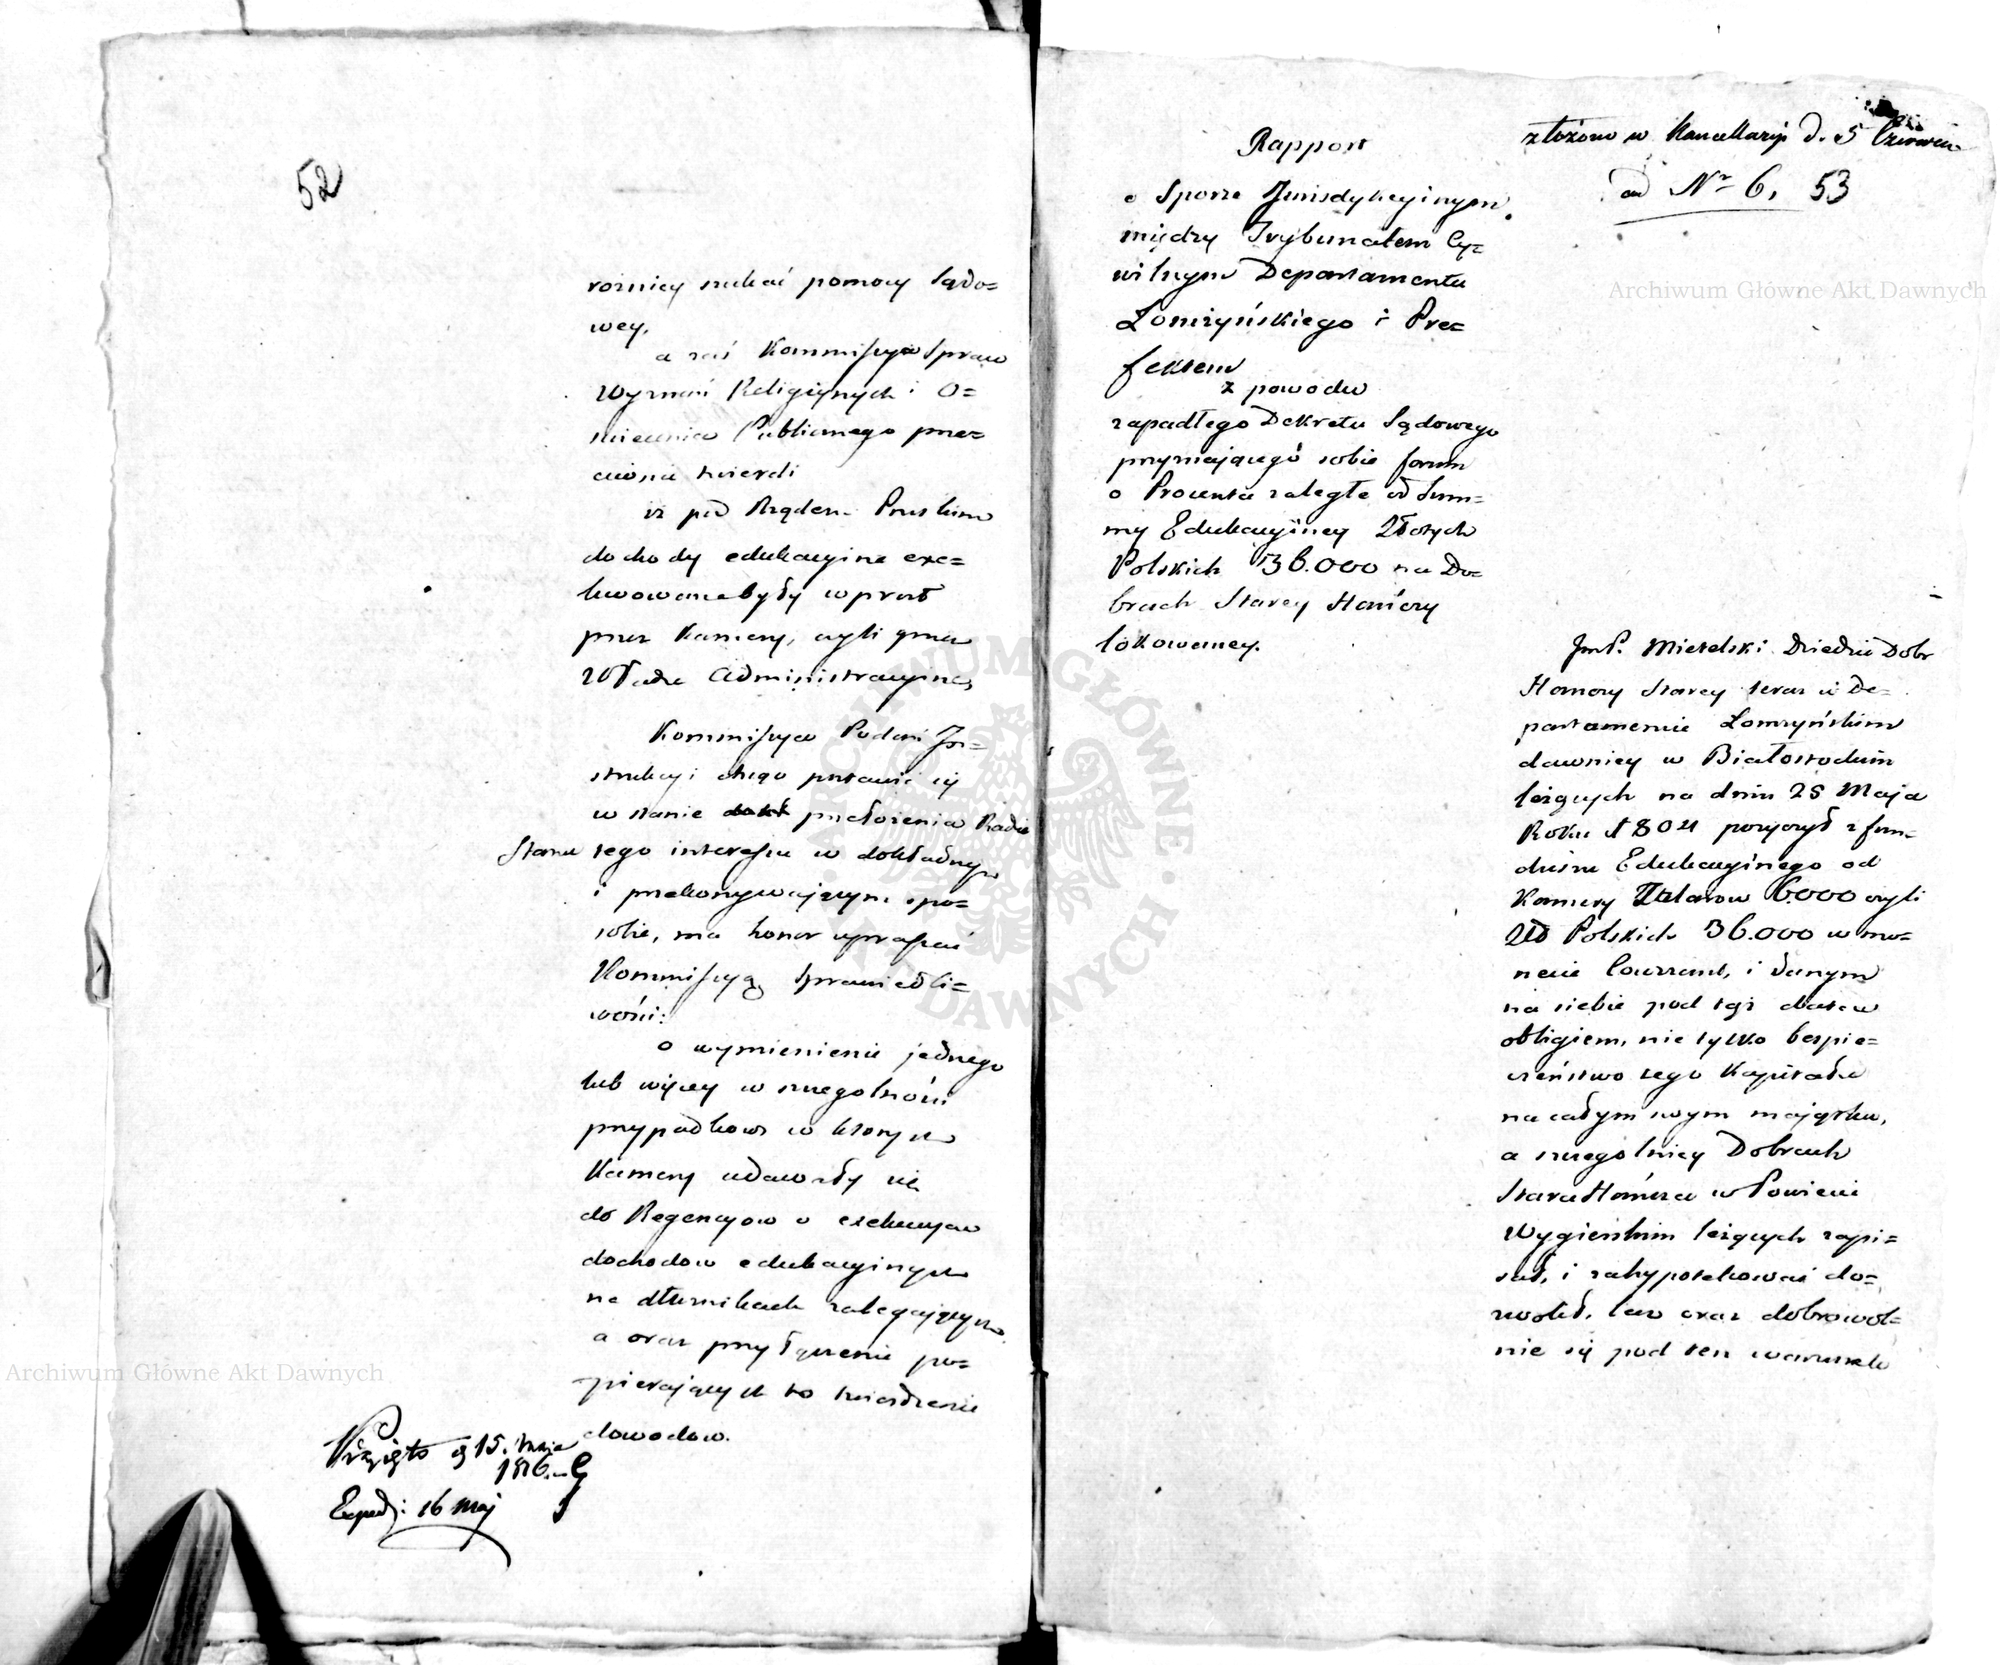 52
rożnicy szukać pomocy Sądo=
wey,
a zaś Kommissya Spraw
Wyznań Religiynych i O=
świecenia Publicznego prze=
ciwnie twierdzi
iż pod Rządem Pruskim
dochody edukacyine exe=
kwowane były wprost
przez Kamery, czyli przez
Władze Administracyine,
Kommissya Podań i In=
strukcyi chcąc postawić się
w stanie przełożenia Radzie
Stanu tego interessu w dokładnym
i przekonywającym spo=
sobie, ma honor upraszać
Kommissyą Sprawiedli=
wości:
o wymienienie jednego
lub więcey w szczegolności
przypadkow w ktorych
Kamery udawały się
do Regencyow o exekucyą
dochodow edukacyinych
na dłużnikach zalegających
a oraz przyłączenie po=
pierających to twierdzenie
dowodow.
Przyięto d 15. Maja
1816.
Exped: 16 Maj
Rapport
o Sporze Jurisdykcyinym
między Trybunałem Cy=
wilnym Departamentu
Łomżyńskiego i Pre=
fektem
z powodu
zapadłego Dekretu Sądowego
przyznającego sobie forum
o Procenta zaległe od Sum=
my Edukacyiney Złotych
Polskich 36.000 na Do=
brach Starey Hańczy
lokowaney.
złożono w Kancellaryi d. 5 Czerwca
ad Nr 6, 53
JmP. Mierelski Dziedzic Dobr
Hanczy Starey teraz w De=
partamencie Łomżyńskim
dawniey w Białostockim
leżących na dniu 25 Maja
Roku 1804 pożyczył z fun=
duszu Edukacyinego od
Kamery Talarow 6.000 czyli
Zło Polskich 36.000 w mo=
necie Courrant, i danym
na siebie pod tąż datą
obligiem, nie tylko bespie=
czeństwo tego Kapitału
na całym swym maiątku,
a szczegolniey Dobrach
Stara Hańcza w Powiecie
Wygierskim leżących zapi=
sał, i zahypotekować do=
zwolił, lecz oraz dobrowol=
nie się pod ten warunek
Archiwum Główne Akt Dawnych
Archiwum Główne Akt Dawnych
ARCHIWUM GŁÓWNE AKT DAWNYCH